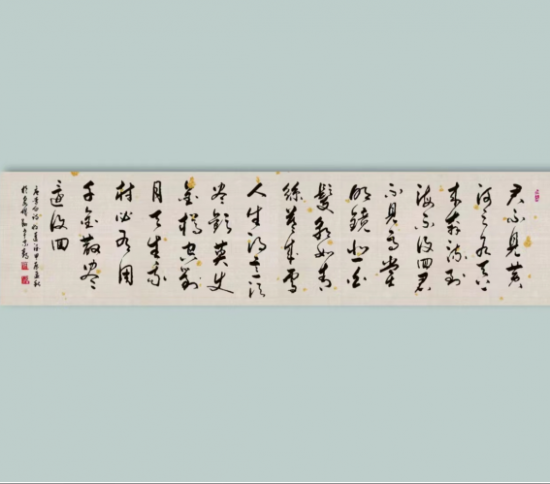 君不見黄
河之水天上
來奔流到
海不復回君
不見高堂
明鏡悲白
髮朝如青
絲暮成雪
人生得意須
盡歡莫使
金樽空對
月天生我
材必有用
千金散盡
還復回
李白诗